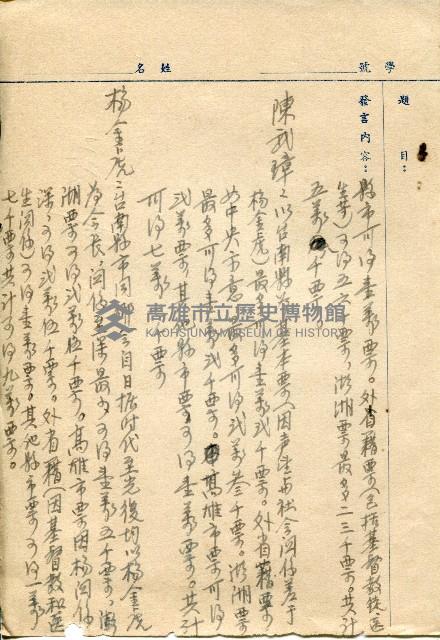 學號 姓名
題目：
發言內容：
縣市可得壹萬票。外省籍票(包括基督教徒医
生等)可得五六千票，澎湖票最多二三千票。共計
五萬千票
陳武璋：以台南縣為基本票(因產生与社会関係差于
楊金虎)最多可得壹萬弍千票。外省籍票
如中央示意最多可得弍萬叁千票。澎湖票
最多可得壹弍千票。高雄市票可得
弍萬票。其他縣市票可得壹萬票。共計
可得七萬票
楊金虎：台南縣市同鄉会自日据时代至光復均以楊金虎
為会長，関係至深最少可得壹萬五千票。澎
湖票可得弍萬伍千票。高雄市票因楊関係
深可得弍萬伍千票。外省籍(因基督教和医
生関係)可得壹萬票。其他縣市票可得一萬
七千票共計可得九萬票。
高雄市立歷史博物館
KAOHSIUNG MUSEUM OF HISTORY